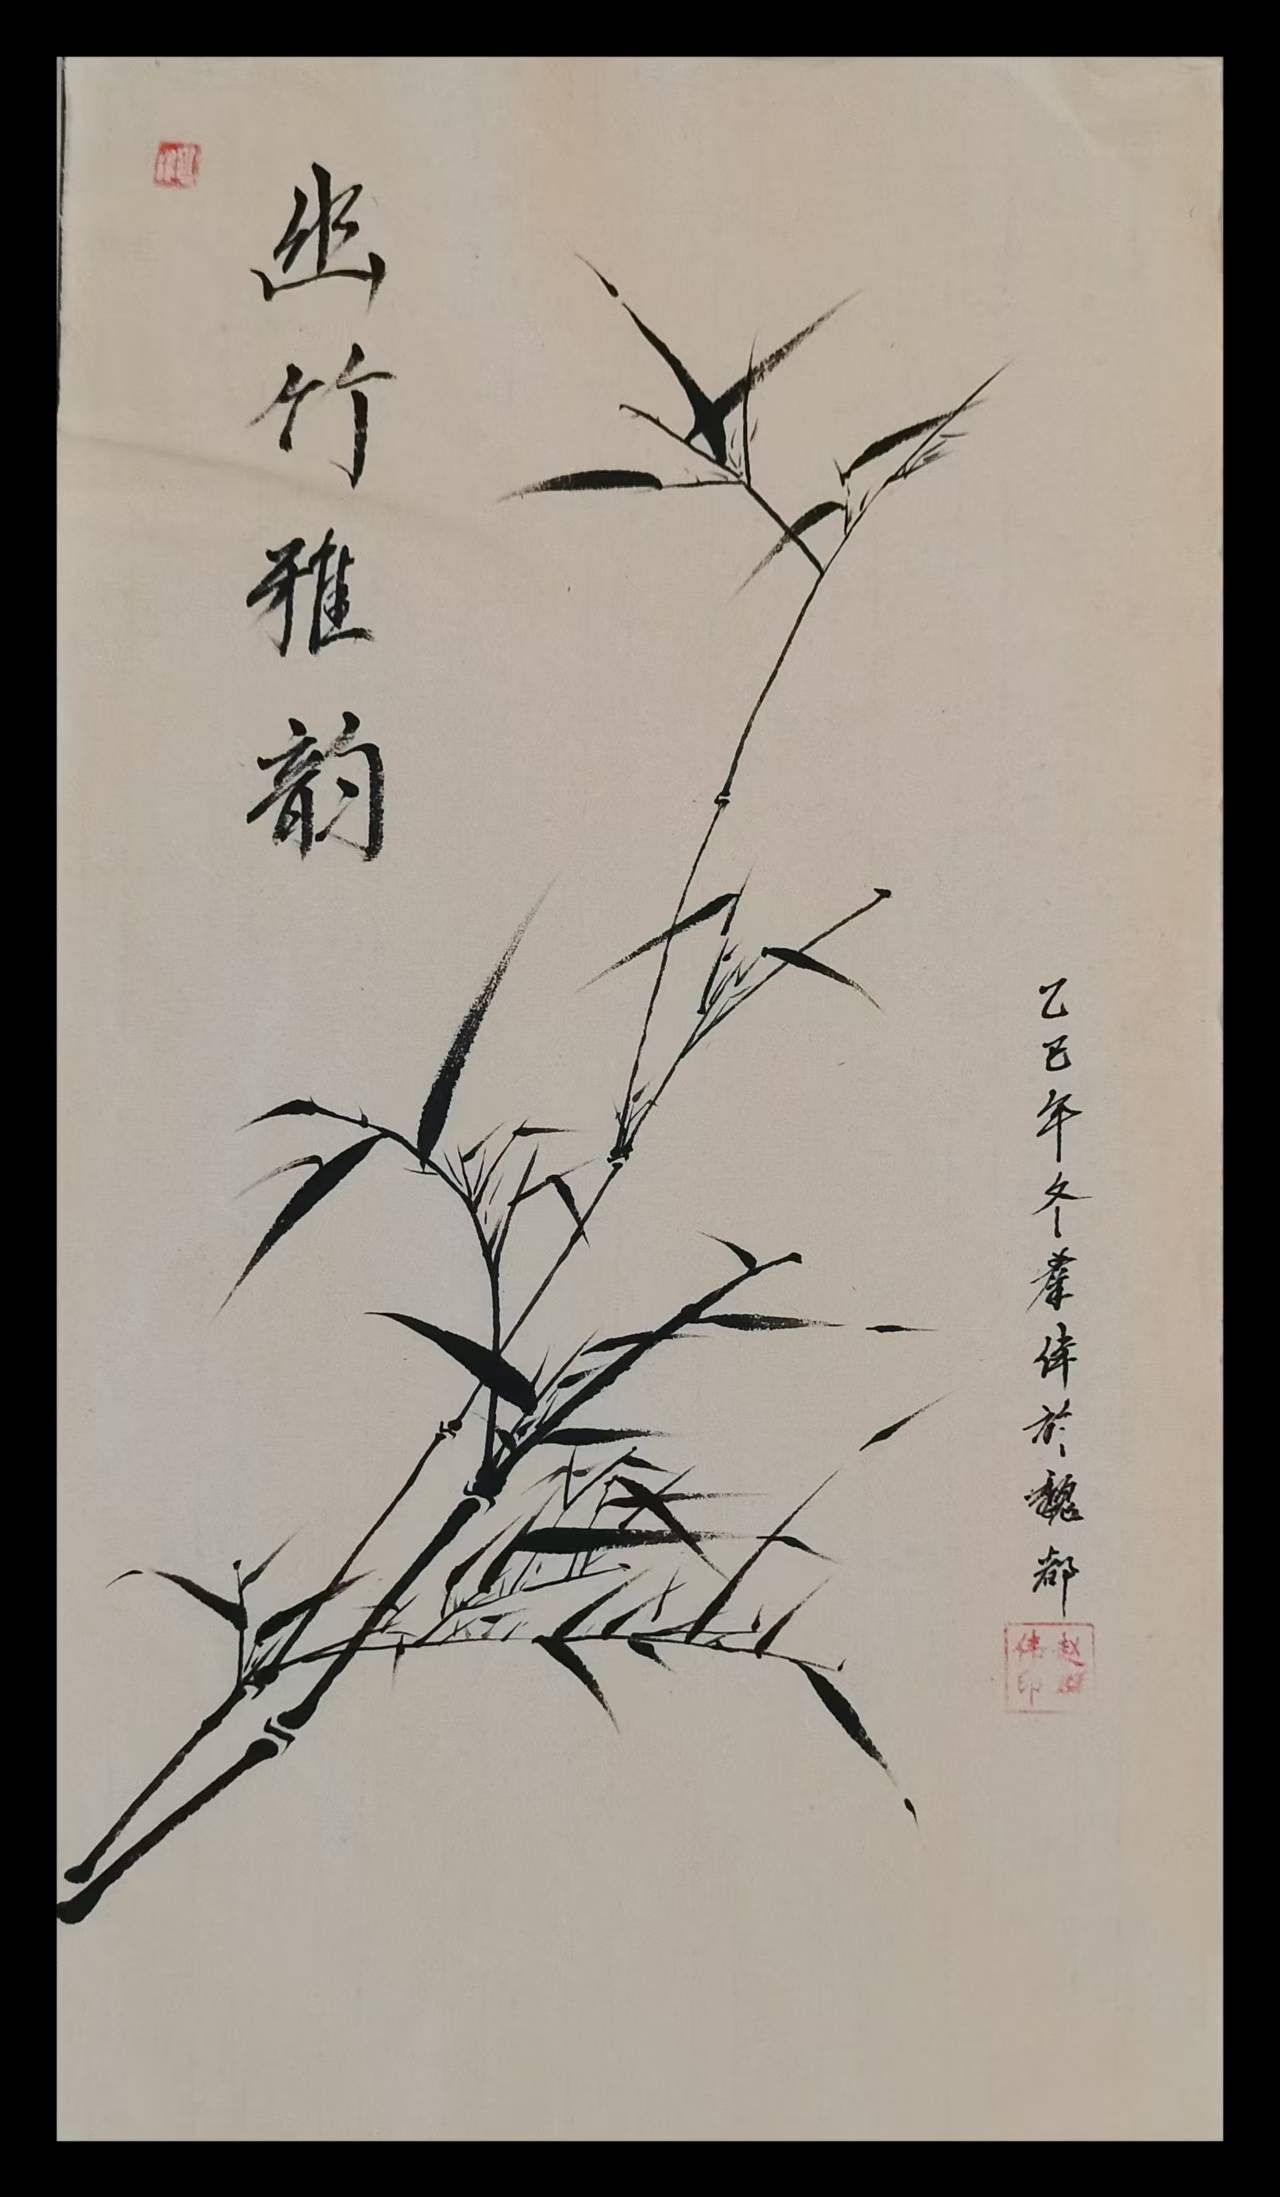 幽竹雅韵
乙巳年冬群伟於魏都
赵群
伟印